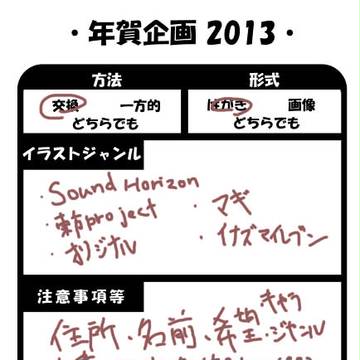 ・年賀企画 2013・
方法 形式
交換 一方的 はがき 画像
どちらでも どちらでも
イラストジャンル
・Sound Horizon
・東方project ・マギ
・オリジナル ・イナズマイレブン
注意事項等
住所・名前・希望ジャンル
キャラ